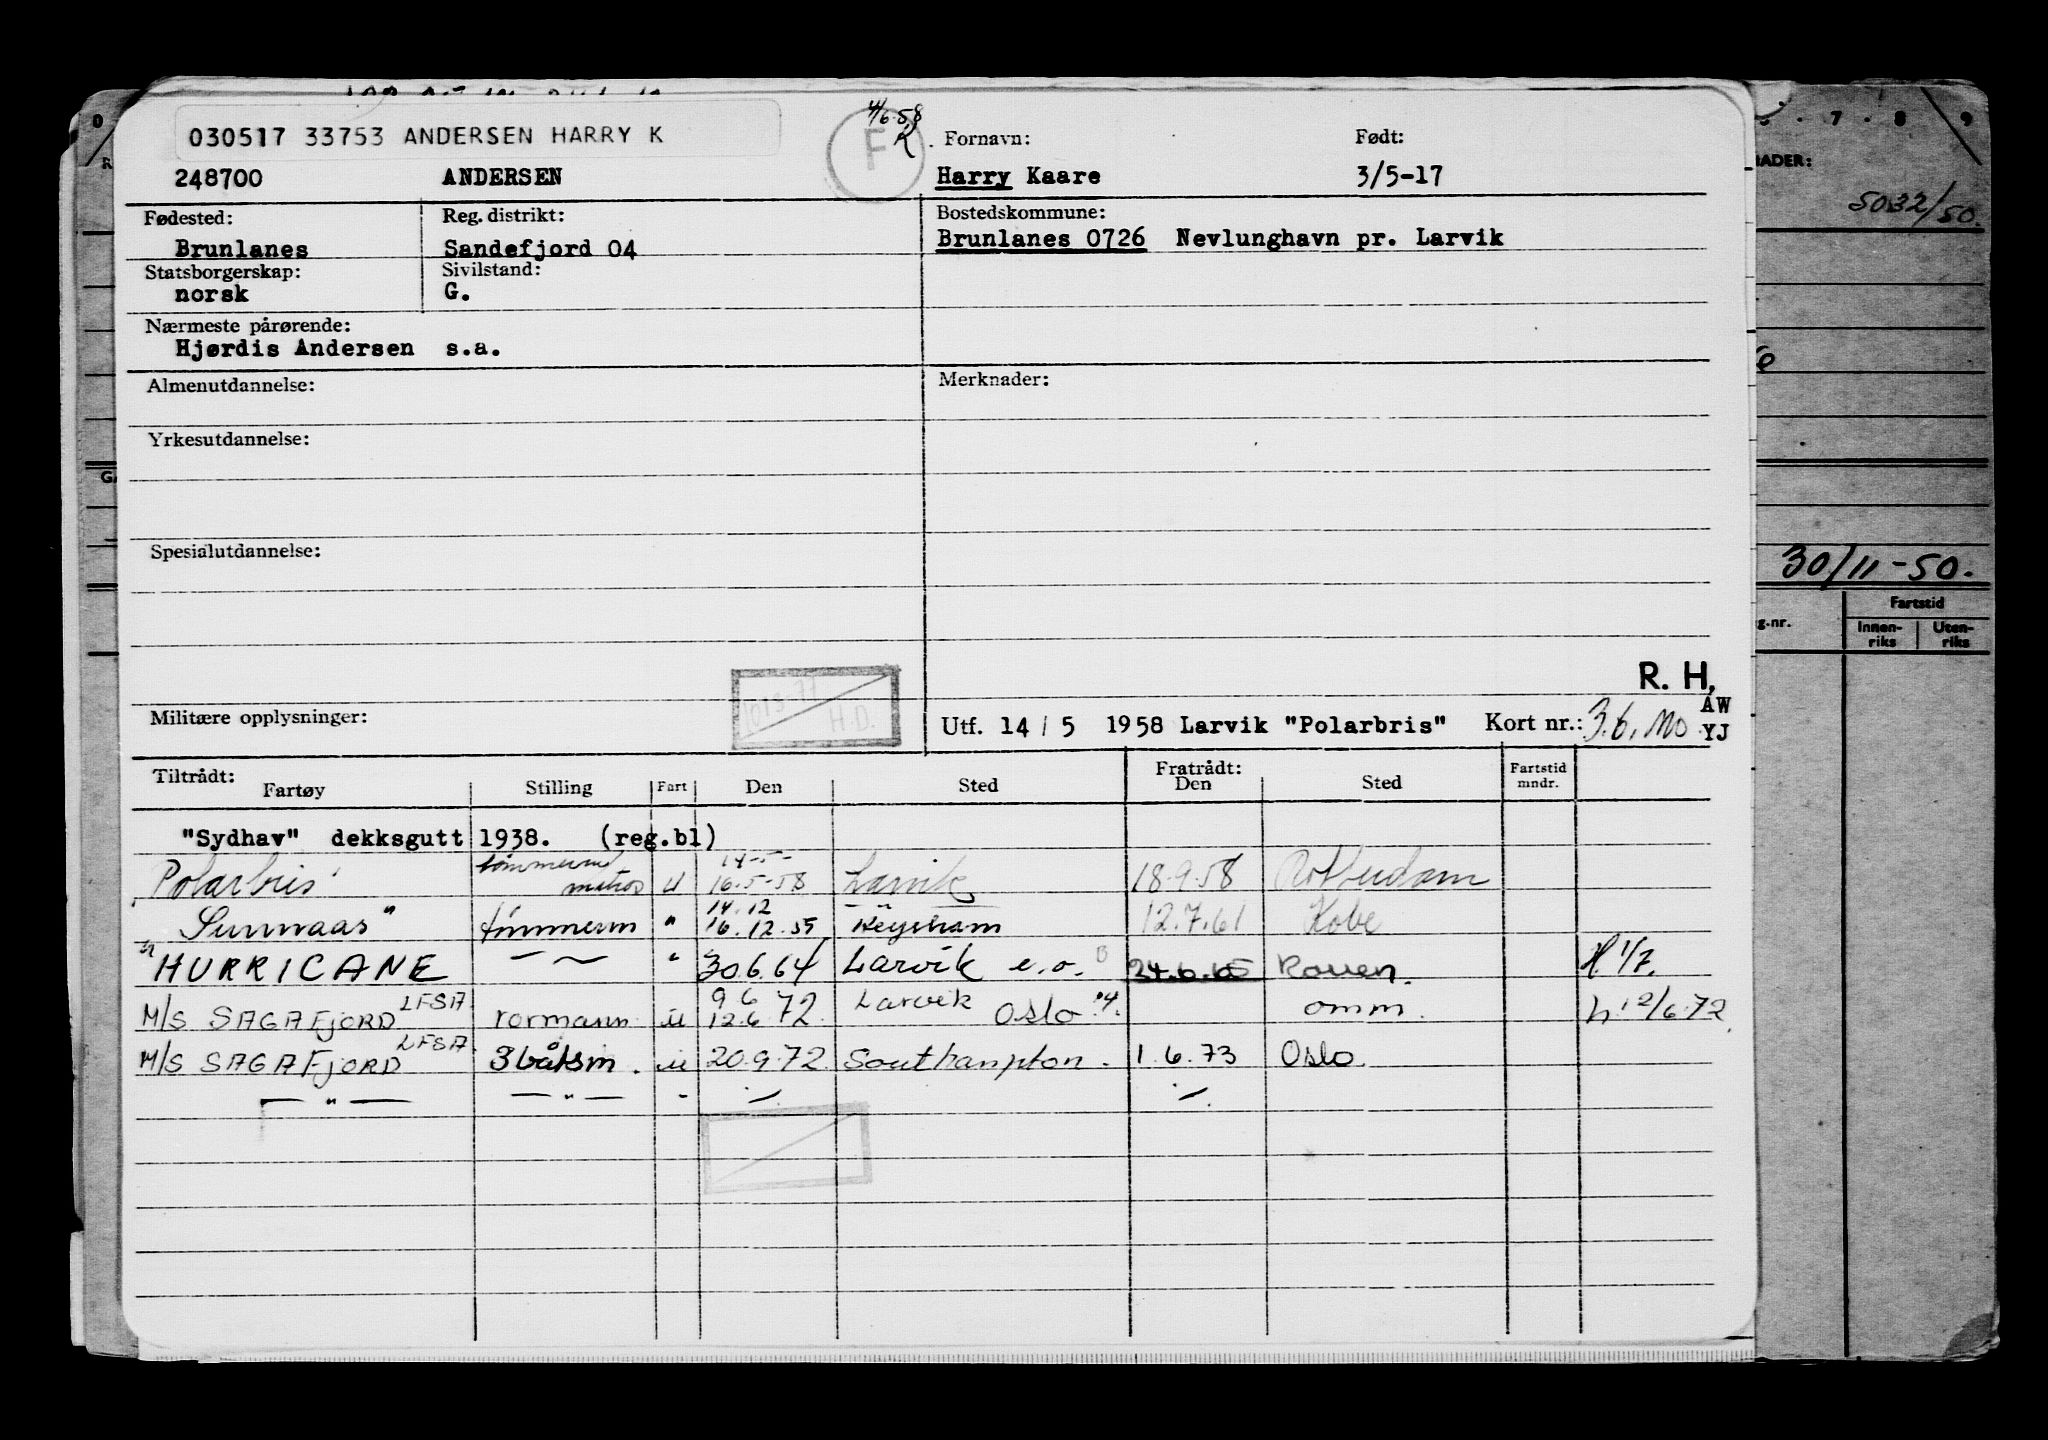 030517 33753 ANDERSEN HARRY K
4/6.58
F
R
Fornavn:
Født:
248700 ANDERSEN
Harry Kaare
3/5-17
Fødested:
Reg. distrikt:
Bostedskommune:
Brunlanes
Sandefjord 04
Brunlanes 0726 Nevlunghavn pr. Larvik
Statsborgerskap:
Sivilstand:
norsk
G.
Nærmeste pårørende:
Hjørdis Andersen s.a.
Almenutdannelse:
Merknader:
Yrkesutdannelse:
Spesialutdannelse:
R. H.
AW
YJ
1013-77
H.D.
Militære opplysninger:
Utf. 14 / 5 1958 Larvik "Polarbris"
Kort nr.: 3.6.
Tiltrådt:
Fartøy Stilling Fart Den Sted
Fratrådt:
Den Sted
Fartstid
mndr.
"Sydhav" dekksgutt 1938. (reg.bl)
Polarbris tømmerm matros u 14-5- 16.5-58 Larvik 18.9.58 Rotterdam
"Sunnaas" tømmerm " 14.12 16.12.59 12.7.61 Kobe
"HURRICANE — 〜 " 30.6.64 Larvik e.o. B 24.6.65 Rouen. H 1/7.
M/S SAGAFJORD LFSA rormann u 9 6 12.6 72. Larvik Oslo omm. h 12/6.72.
M/S SAGAFJORD LFSA 3 båtsm. u 20.9.72. Southampton. 1.6.73 Oslo.
— " — — " — -
MADER:
5032/50.
30/11-50.
g.nr.
Fartstid
Innen-
riks
Uten-
riks
7 . 8 . 9